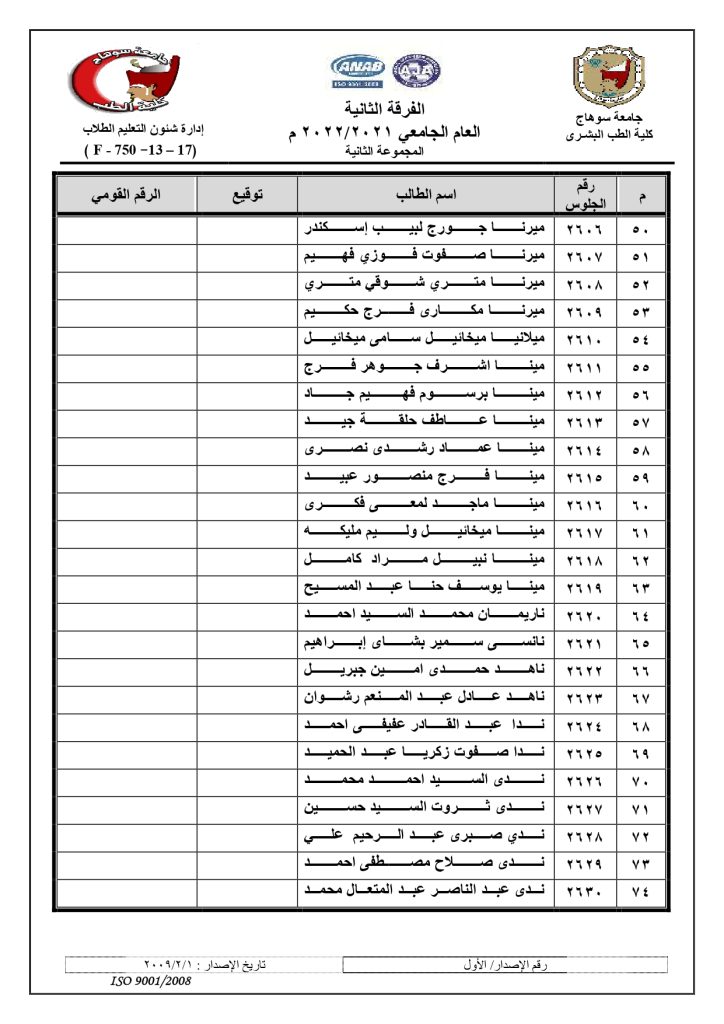 جامعة سوهاج
كلية الطب
ANAB
ISO 9001:2008
AJA
جامعة سوهاج
كلية الطب البشرى
الفرقة الثانية
العام الجامعي ٢٠٢٢/٢٠٢١ م
المجموعة الثانية
إدارة شئون التعليم الطلاب
( F - 750 -13 – 17)
م رقم الجلوس اسم الطالب توقيع الرقم القومي
٥٠ ٢٦٠٦ ميرنا جورج لبيب إسكندر
٥١ ٢٦٠٧ ميرنا صفوت فوزي فهيم
٥٢ ٢٦٠٨ ميرنا متري شوقي متري
٥٣ ٢٦٠٩ ميرنا مكارى فرج حكيم
٥٤ ٢٦١٠ ميلانيا ميخائيل سامى ميخائيل
٥٥ ٢٦١١ مينا اشرف جوهر فرج
٥٦ ٢٦١٢ مينا برسوم فهيم جاد
٥٧ ٢٦١٣ مينا عاطف حلقة جيد
٥٨ ٢٦١٤ مينا عماد رشدى نصرى
٥٩ ٢٦١٥ مينا فرج منصور عبيد
٦٠ ٢٦١٦ مينا ماجد لمعى فكرى
٦١ ٢٦١٧ مينا ميخائيل وليم مليكه
٦٢ ٢٦١٨ مينا نبيل مراد كامل
٦٣ ٢٦١٩ مينا يوسف حنا عبد المسيح
٦٤ ٢٦٢٠ ناريمان محمد السيد احمد
٦٥ ٢٦٢١ نانسى سمير بشاى إبراهيم
٦٦ ٢٦٢٢ ناهد حمدى امين جبريل
٦٧ ٢٦٢٣ ناهد عادل عبد المنعم رشوان
٦٨ ٢٦٢٤ ندا عبد القادر عفيفى احمد
٦٩ ٢٦٢٥ ندا صفوت زكريا عبد الحميد
٧٠ ٢٦٢٦ ندى السيد احمد محمد
٧١ ٢٦٢٧ ندى ثروت السيد حسين
٧٢ ٢٦٢٨ ندي صبرى عبد الرحيم علي
٧٣ ٢٦٢٩ ندى صلاح مصطفى احمد
٧٤ ٢٦٣٠ ندى عبد الناصر عبد المتعال محمد
رقم الإصدار/ الأول تاريخ الإصدار : ٢٠٠٩/٢/١
ISO 9001/2008